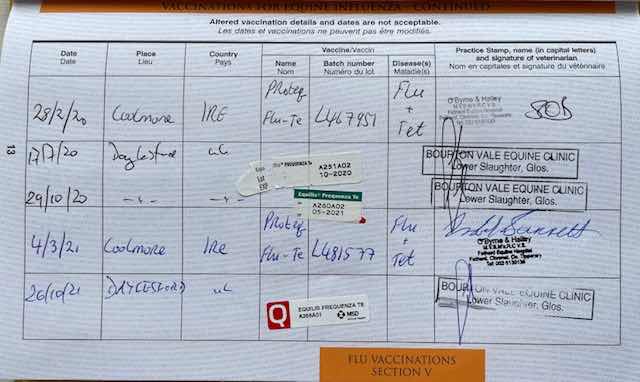 VACCINATIONS FOR EQUINE INFLUENZA - CONTINUED
Altered vaccination details and dates are not acceptable.
Les dates et vaccinations ne peuvent pas être modifiés.
Date Place Country Vaccine/Vaccin Practice Stamp, name (in capital letters)
Date Lieu Pays Name Batch number Disease(s) and signature of veterinarian
Nom Numéro du lot Maladie(s) Nom en capitales et signature du vétérinaire
28/2/20 Coolmore IRE Proteq Flu-Te L467951 Flu + Tet O'Byrne & Halley
13
17/7/20 Daylesford UK Equilis Frequenza Te A251A02
Lot EXP 10-2020
BOURTON VALE EQUINE CLINIC
Lower Slaughter, Glos.
29/10/20 Equilis Frequenza Te
A260A02
05-2021
BOURTON VALE EQUINE CLINIC
Lower Slaughter, Glos.
4/3/21 Coolmore IRe Proteq Flu-Te L481577 Flu + Tet
O'Byrne & Halley
M.V.B M.R.C.V.S.
Fethard Equine Hospital
Fethard, Clonmel, Co. Tipperary
26/10/21 DAYLESFORD UK
Q EQUILIS FREQUENZA TE
MSD
BOURTON VALE EQUINE CLINIC
Lower Slaughter, Glos.
FLU VACCINATIONS
SECTION V